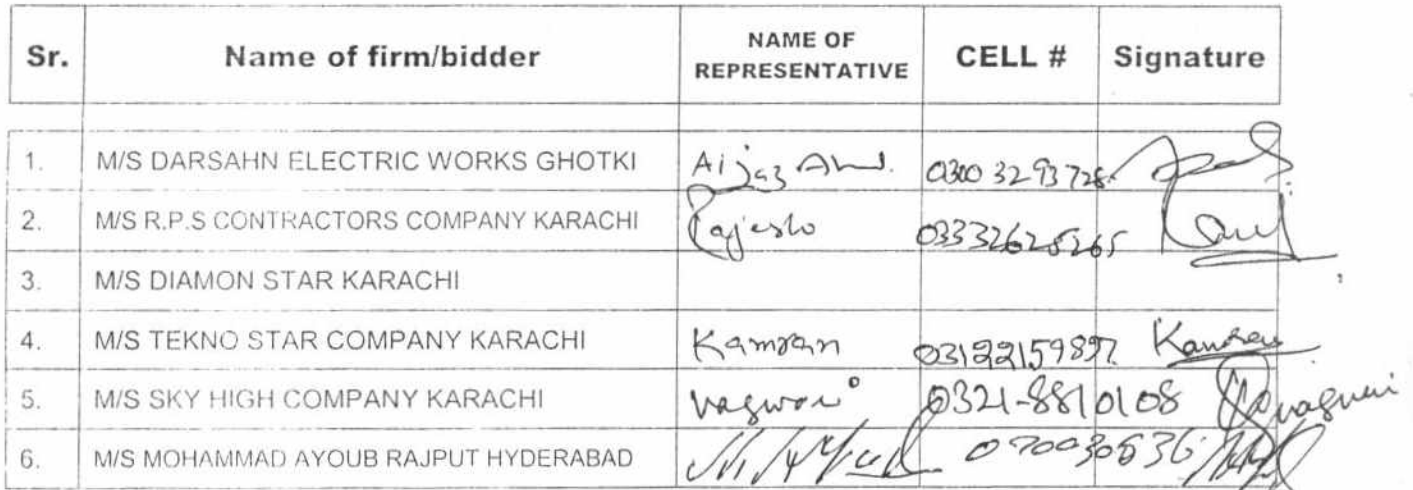 Sr. Name of firm/bidder NAME OF REPRESENTATIVE CELL # Signature
1. M/S DARSAHN ELECTRIC WORKS GHOTKI Aijaz Ahd. 0300 3293728
2. M/S R.P.S CONTRACTORS COMPANY KARACHI Rajesh 03332628265
3. M/S DIAMON STAR KARACHI
4. M/S TEKNO STAR COMPANY KARACHI Kamran 03122159897 Kamran
5. M/S SKY HIGH COMPANY KARACHI vagwani 0321-8810108 vagwani
6. M/S MOHAMMAD AYOUB RAJPUT HYDERABAD